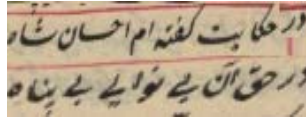 در حکایت گفته ام احسان شاه
در حق آن بے نوایے بے پناه